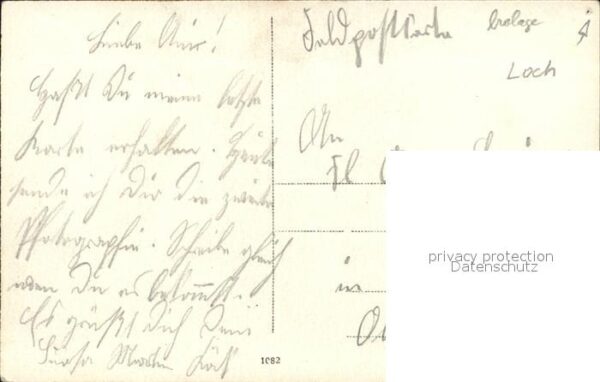 Liebe Änne!
Hast Du meine letzte
Karte erhalten. Heute
sende ich Dir die zweite
Photographie. Schreibe gleich
wenn Du es bekommst.
Es grüßt Dich Dein
Martin
1082
Feldpostkarte
Loch
An
Frl
in
privacy protection
Datenschutz